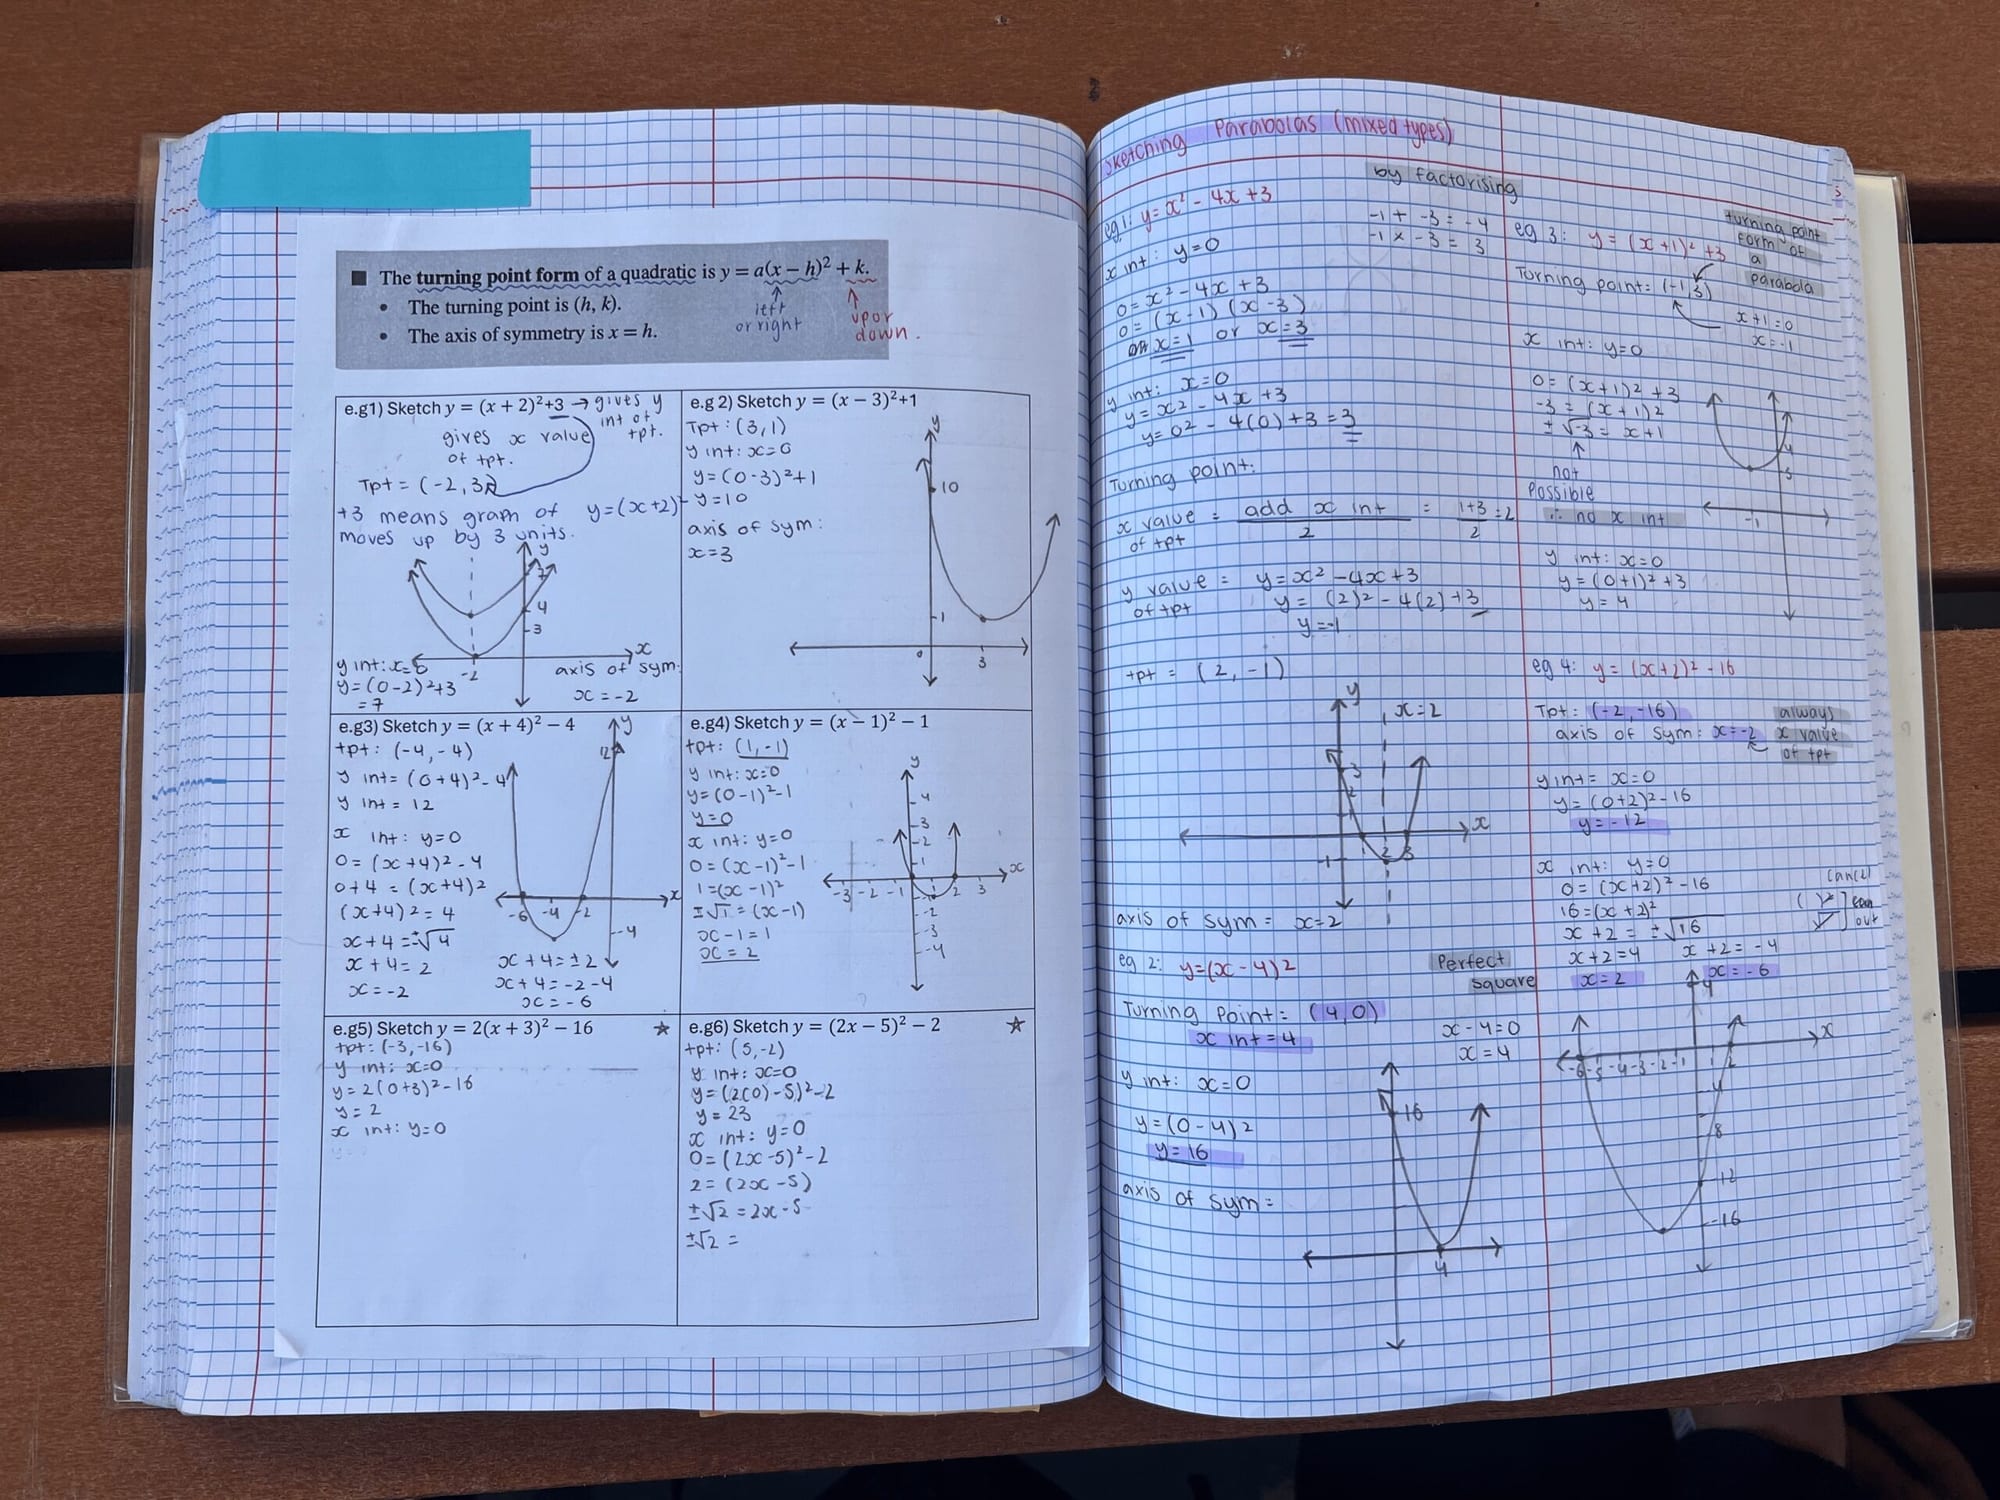 ■ The turning point form of a quadratic is y = a(x − h)² + k.
• The turning point is (h, k).
• The axis of symmetry is x = h.
left
or right
up or
down.
e.g1) Sketch y = (x + 2)²+3 → gives y
int of
tpt.
gives x value
of tpt.
Tpt = (-2, 3)
+3 means graph of y=(x+2)²
moves up by 3 units.
y
7
4
3
x
-2
y int: x=0
y=(0-2)²+3
= 7
axis of sym:
x = -2
e.g 2) Sketch y = (x − 3)²+1
Tpt : (3,1)
y int: x=0
y=(0-3)²+1
y=10
axis of sym:
x=3
y
10
1
0
3
e.g3) Sketch y = (x + 4)² − 4
tpt: (-4, -4)
y int= (0+4)²-4
y int = 12
x int: y=0
0= (x+4)²-4
0+4 = (x+4)²
(x+4)² = 4
x+4 = ±√4
x+4= 2
x= -2
x+4= ±2
x+4= -2-4
x= -6
y
12
x
-6
-4
-2
-4
e.g4) Sketch y = (x − 1)² − 1
tpt: (1,-1)
y int: x=0
y=(0-1)²-1
y=0
x int: y=0
0=(x-1)²-1
1=(x-1)²
±√1 = (x-1)
x-1=1
x = 2
y
4
3
2
1
x
-3 -2 -1
2 3
-2
-3
-4
e.g5) Sketch y = 2(x + 3)² − 16 ★
tpt: (-3,-16)
y int: x=0
y=2(0+3)²-16
y= 2
x int: y=0
e.g6) Sketch y = (2x − 5)² − 2 ★
tpt: (5,-2)
y int: x=0
y=(2(0)-5)²-2
y= 23
x int: y=0
0= (2x-5)²-2
2 = (2x-5)
±√2 = 2x-5
±√2 =
Sketching Parabolas (mixed types)
by factorising
eg 1: y=x² - 4x+3
-1 + -3 = -4
-1 × -3 = 3
x int: y=0
0=x² - 4x + 3
0= (x-1) (x-3)
x=1 or x=3
y int: x=0
y=x² - 4x+3
y=0² - 4(0)+3 = 3
Turning point:
x value = add x int = 1+3 = 2
of tpt 2 2
y value = y=x² -4x+3
of tpt y= (2)² - 4(2)+3
y=-1
tpt = (2, -1)
y
x=2
3
2
x
1 2 3
-1
axis of sym = x=2
eg 2: y=(x-4)²
Perfect
square
Turning Point= (4,0)
x int = 4
x-4=0
x=4
y int: x=0
y=(0-4)²
y=16
axis of sym=
16
4
eg 3: y= (x+1)² +3
turning point
form of
a
parabola
Turning point: (-1,3)
x+1=0
x=-1
x int: y=0
0= (x+1)² +3
-3 = (x+1)²
± √-3 = x+1
not
possible
∴ no x int
4
-1
y int: x=0
y=(0+1)²+3
y= 4
eg 4: y= (x+2)² -16
Tpt= (-2,-16)
axis of sym: x=-2
always
x value
of tpt
y int= x=0
y= (0+2)²-16
y= -12
x int: y=0
0= (x+2)² -16
16=(x+2)²
x+2= ±√16
x+2=4 x+2= -4
x=2 x= -6
cancel
out
y
x
-6 -5 -4 -3 -2 -1
1 2
4
-8
-12
-16